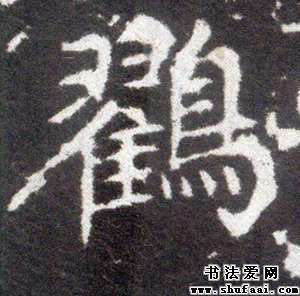 鸐
书法爱网
www.shufaai.com